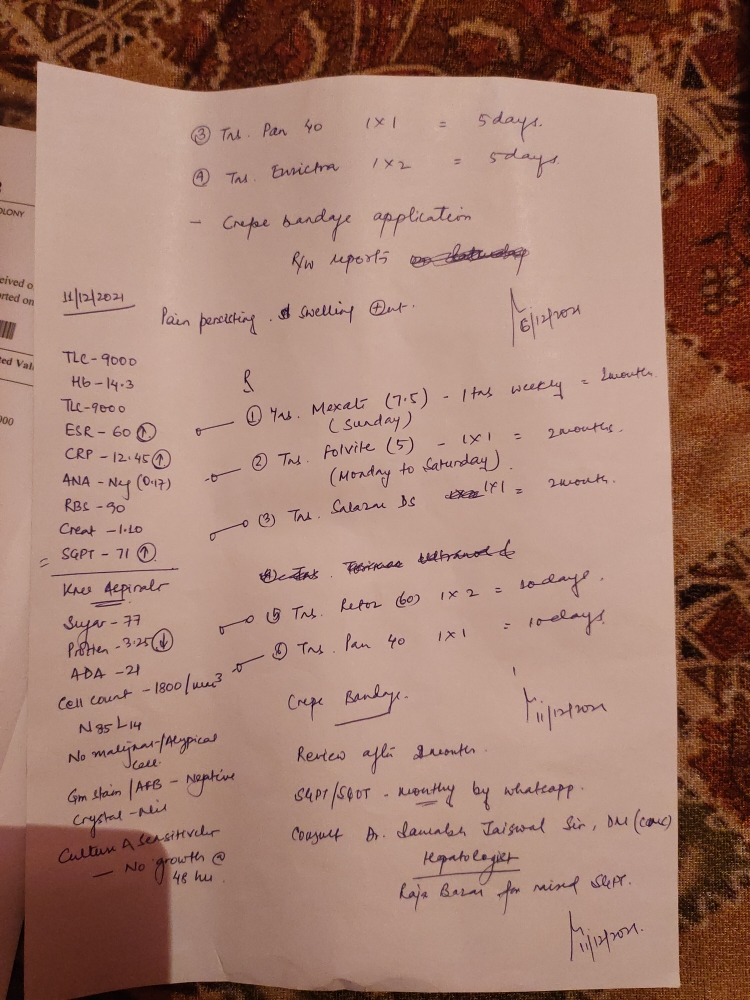 ③ Tab. Pan 40 1 x 1 = 5 days.
④ Tab. 1 x 2 = 5 days.
- Crepe bandage application
R/w reports
6/12/2021
11/12/2021
Pain persisting. swelling ⊕nt.
TLC - 9000
Hb - 14.3
TLC - 9000
ESR - 60 ↑
CRP - 12.45 ↑
ANA - Neg (0.17)
RBS - 90
Creat - 1.10
= SGPT - 71 ↑
Knee Aspirate
Sugar - 77
Protein - 3.25 ↓
ADA - 21
Cell count - 1800/mm3
N 85 L 14
No malignant/Atypical
cell.
Gm stain / AFB - Negative
Crystal - Nil
Culture & Sensitivity
- No growth @
48 hrs.
R
① Tab. (7.5) - 1 tab weekly = 2 months.
(Sunday)
② Tab. Folvite (5) - 1x1 = 2 months.
(Monday to Saturday).
③ Tab. DS 1x1 = 2 month.
⑤ Tab. (60) 1 x 2 = 10 days.
⑥ Tab. Pan 40 1x1 = 10 days
Crepe Bandage.
11/12/2021
Review after 2 months.
SGPT/SGOT - monthly by whatsapp.
Consult Dr. Jaiswal Sir, DM
Hepatologist
Raja Bazar for raised SGPT.
11/12/2021.
OLONY
eived o
orted on
ted Val
000